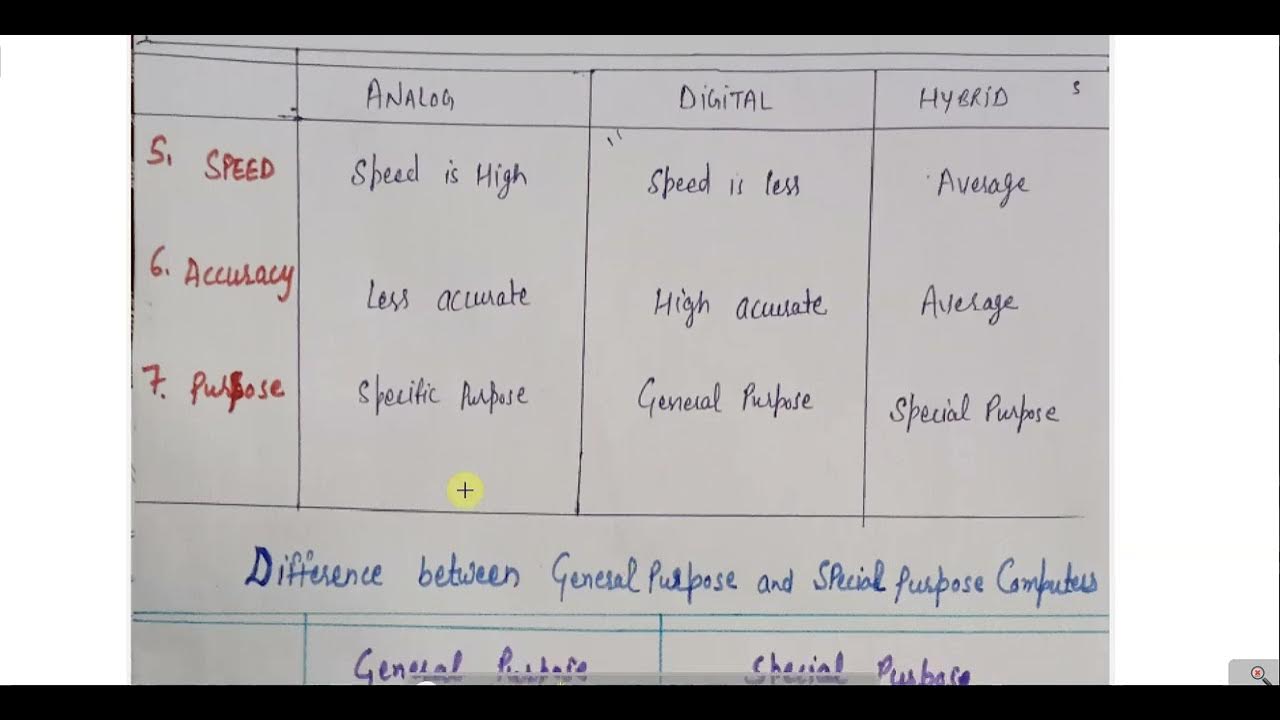 ANALOG DIGITAL HYBRID s
5. SPEED Speed is High Speed is less Average
6. Accuracy Less accurate High accurate Average
7. Purpose Specific Purpose General Purpose Special Purpose
Difference between General Purpose and Special Purpose Computers
General Purpose Special Purpose